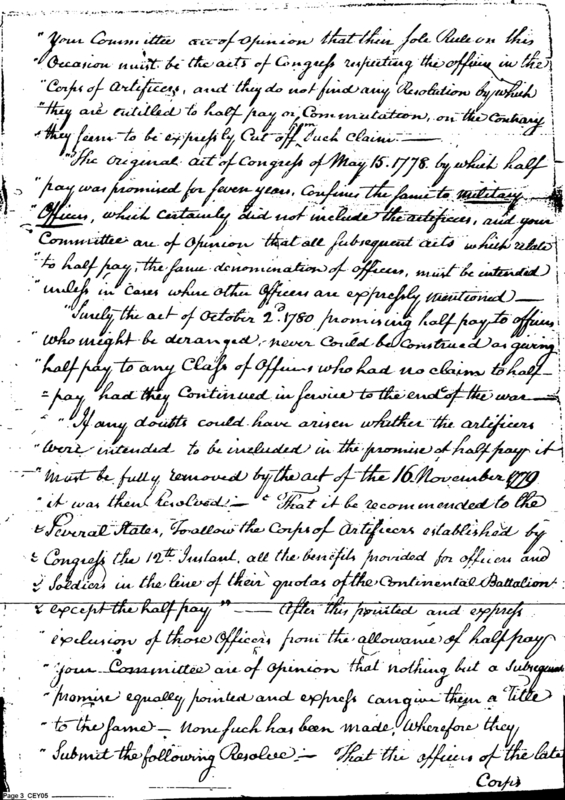 "Your Committee are of opinion that their sole Rule on this
"Occasion must be the acts of Congress respecting the officers in the
"Corps of Artificers, and they do not find any Resolution by which
"they are entitled to half pay or Commutation, on the Contrary
"they seem to be expressly Cut off from Such claim.—
"The original act of Congress of May 15. 1778. by which half
"pay was promised for seven years, Confines the same to military
"Officers, which certainly did not include the artificers, and your
"Committee are of Opinion that all subsequent acts which relate
"to half pay, the same denomination of officers, must be intended
"unless in Cases where other Officers are expressly mentioned—
"Surely the act of October 2d. 1780 promising half pay to officers
"who might be deranged, never Could be Construed as giving
"half pay to any Class of Officers who had no claim to half-
"pay had they Continued in service to the end of the war—
"If any doubts could have arisen whether the artificers
"were intended to be included in the promise of half pay it
"must be fully removed by the act of the 16 November 1779
"it was then Resolved:— "That it be recommended to the
"Several States, To allow the Corps of Artificers established by
"Congress the 12th Instant, all the benefits provided for officers and
"Soldiers in the line of their quotas of the Continental Battalion
"except the half pay"— After this pointed and express
"exclusion of those Officers from the allowance of half pay
"your Committee are of opinion that nothing but a Subsequent
"promise equally pointed and express can give them a Title
"to the same— None such has been made, Wherefore they
"Submit the following Resolve:— That the officers of the late
Corps
Page 3 CEY05